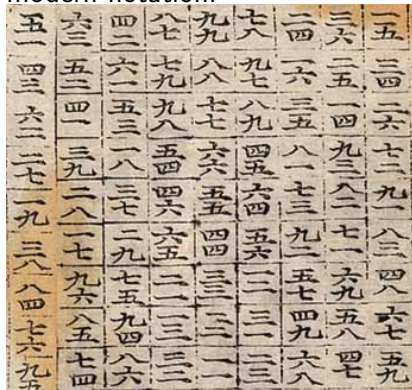 modern notation.
五一 六三 四二 八七 九九 七八 二四 三六 一五
四三 五二 六一 七九 八八 九七 一六 二五 三四
六二 四一 五三 九八 七七 八九 三五 一四 二六
二七 三九 一八 五四 六六 四五 八一 九三 七二
一九 二八 三七 四六 五五 六四 七三 八二 九一
三八 一七 二九 六五 四四 五六 九二 七一 八三
八四 九六 七五 二一 三三 一二 五七 六九 四八
七六 八五 九四 一三 二二 三一 四九 五八 六七
九五 七四 八六 三二 一一 二三 六八 四七 五九